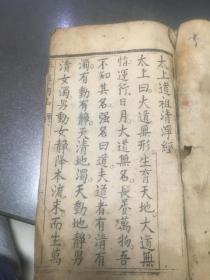 太上道祖清淨經
太上曰大道無形生育天地大道無
情運行日月大道無名長養萬物吾
不知其名強名曰道夫道者有清有
濁有動有靜天清地濁天動地靜男
清女濁男動女靜降本流末而生萬